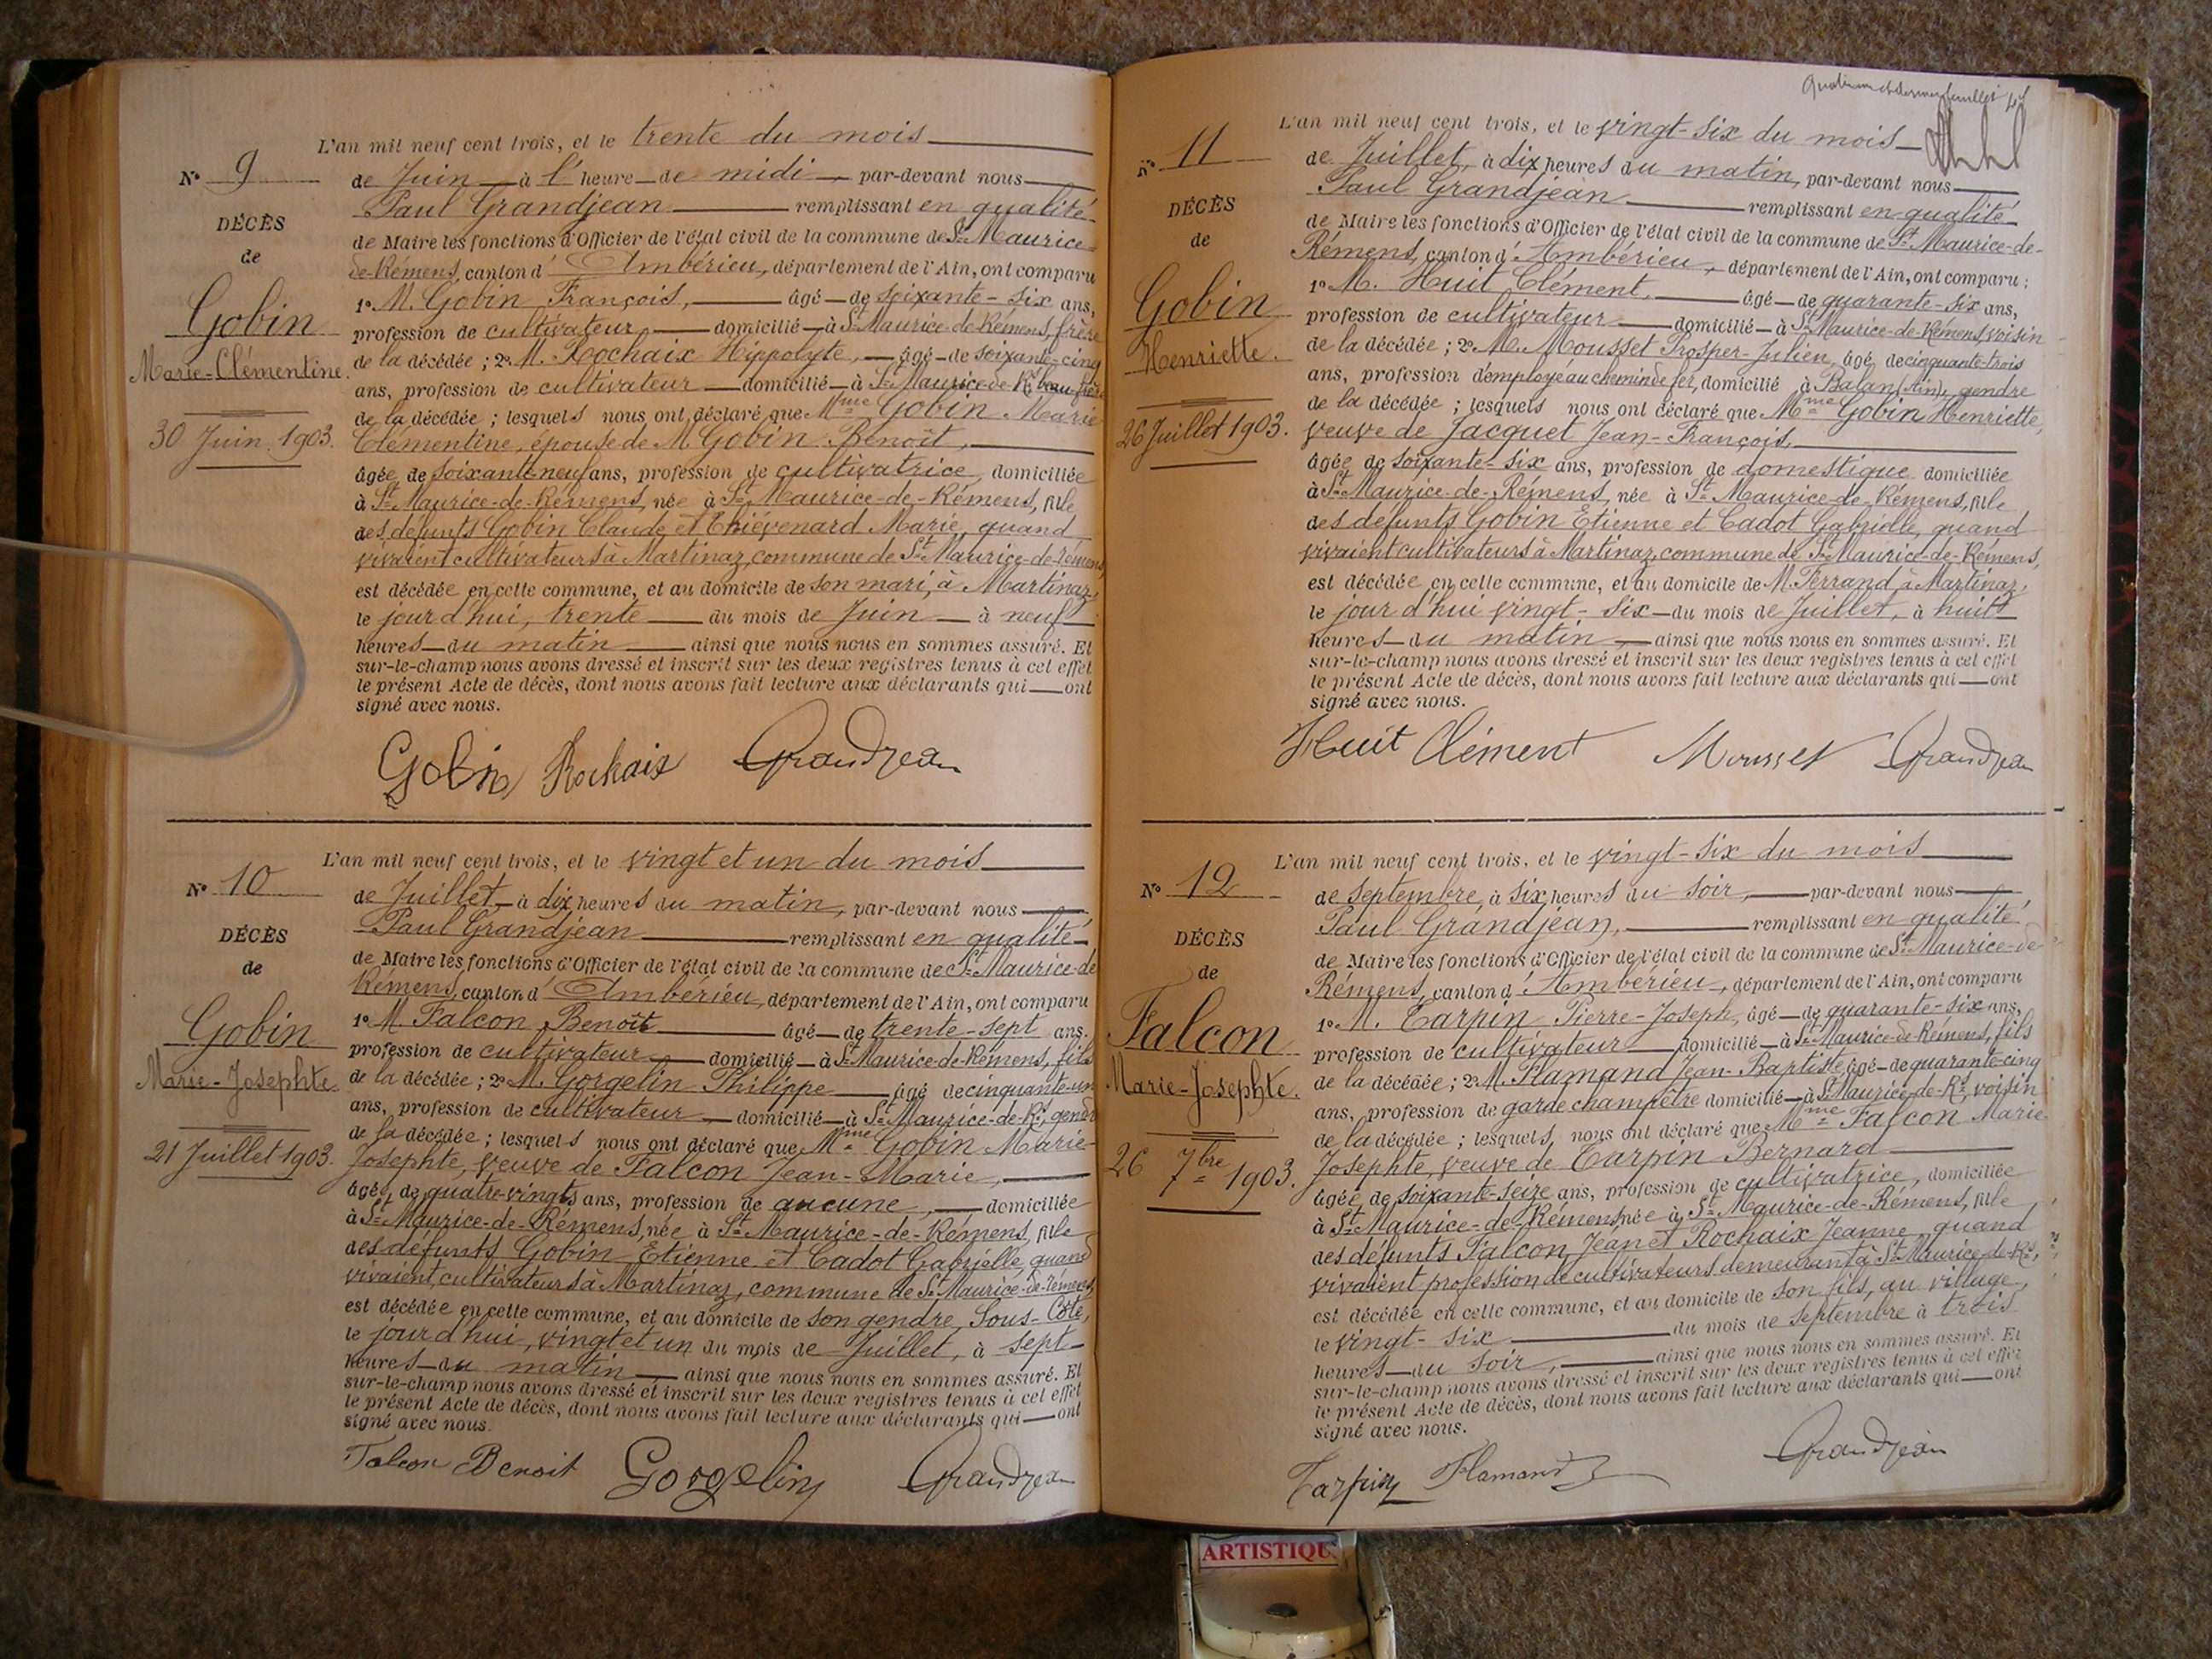 L'an mil neuf cent trois, et le trente du mois
N° 9
de Juin à l' heure de midi, par-devant nous
Paul Grandjean remplissant en qualité
DÉCÈS
de Maire les fonctions d'Officier de l'état civil de la commune de St Maurice-
de
de-Rémens, canton d' Ambérieu, département de l'Ain, ont comparu
1° M. Gobin François, âgé de soixante-six ans,
Gobin
profession de cultivateur, domicilié à St Maurice-de-Rémens, frère
Marie-Clémentine.
de la décédée ; 2° M. Rochaix Hippolyte, âgé de soixante-cinq
ans, profession de cultivateur domicilié à St Maurice-de-Rs beau-frère
de la décédée ; lesquels nous ont déclaré que Mme Gobin Marie
30 Juin 1903.
Clémentine, épouse de M. Gobin Benoît,
âgée de soixante-neuf ans, profession de cultivatrice, domiciliée
à St Maurice-de-Rémens, née à St Maurice-de-Rémens, fille
des défunts Gobin Claude et Thiévenard Marie, quand
vivaient cultivateurs à Martinaz, commune de St Maurice-de-Rémens
est décédée en cette commune, et au domicile de son mari, à Martinaz,
le jour d'hui, trente du mois de Juin à neuf
heures du matin, ainsi que nous nous en sommes assuré. Et
sur-le-champ nous avons dressé et inscrit sur les deux registres tenus à cet effet
le présent Acte de décès, dont nous avons fait lecture aux déclarants qui ont
signé avec nous.
Gobin Rochaix Grandjean
L'an mil neuf cent trois, et le vingt et un du mois
N° 10
de Juillet à dix heures du matin, par-devant nous
Paul Grandjean remplissant en qualité
DÉCÈS
de Maire les fonctions d'Officier de l'état civil de la commune de St Maurice-de
de
Rémens, canton d' Ambérieu, département de l'Ain, ont comparu
1° M. Falcon Benoît âgé de trente-sept ans.
Gobin
profession de cultivateur domicilié à St Maurice-de-Rémens, fils
Marie-Josephte.
de la décédée ; 2° M. Gorgelin Philippe âgé de cinquante-un
ans, profession de cultivateur domicilié à St Maurice-de-Rs, gendre
de la décédée ; lesquels nous ont déclaré que Mme Gobin Marie-
21 Juillet 1903.
Josephte, veuve de Falcon Jean-Marie,
âgée de quatre-vingts ans, profession de aucune, domiciliée
à St Maurice-de-Rémens, née à St Maurice-de-Rémens, fille
des défunts Gobin Etienne et Cadot Gabrielle, quand
vivaient, cultivateurs à Martinaz, commune de St Maurice-de-Rémens
est décédée en cette commune, et au domicile de son gendre, Sous-Côte,
le jour d'hui, vingt et un du mois de Juillet, à sept
heures du matin, ainsi que nous nous en sommes assuré. Et
sur-le-champ nous avons dressé et inscrit sur les deux registres tenus à cet effet
le présent Acte de décès, dont nous avons fait lecture aux déclarants qui ont
signé avec nous.
Falcon Benoit Gorgelin Grandjean
L'an mil neuf cent trois, et le vingt-six du mois
N° 11
de Juillet, à dix heures du matin, par-devant nous
Paul Grandjean remplissant en qualité
DÉCÈS
de Maire les fonctions d'Officier de l'état civil de la commune de St Maurice-de-
de
Rémens, canton d' Ambérieu, département de l'Ain, ont comparu :
1° M. Huit Clément, âgé de quarante-six ans,
Gobin
profession de cultivateur domicilié à St Maurice-de-Rémens, voisin
Henriette.
de la décédée ; 2° M. Mousset Prosper-Julien, âgé de cinquante-trois
ans, profession d'employé au chemin de fer, domicilié à Balan (Ain), gendre
de la décédée ; lesquels nous ont déclaré que Mme Gobin Henriette,
26 Juillet 1903.
veuve de Jacquet Jean-François,
âgée de soixante-six ans, profession de domestique domiciliée
à St Maurice-de-Rémens, née à St Maurice-de-Rémens, fille
des défunts Gobin Etienne et Cadot Gabrielle, quand
vivaient cultivateurs à Martinaz, commune de St Maurice-de-Rémens,
est décédée en cette commune, et au domicile de M. Ferrand, à Martinaz,
le jour d'hui vingt-six du mois de Juillet, à huit
heures du matin, ainsi que nous nous en sommes assuré. Et
sur-le-champ nous avons dressé et inscrit sur les deux registres tenus à cet effet
le présent Acte de décès, dont nous avons fait lecture aux déclarants qui ont
signé avec nous.
Huit Clément Mousset Grandjean
L'an mil neuf cent trois, et le vingt-six du mois
N° 12
de septembre, à six heures du soir, par-devant nous
Paul Grandjean, remplissant en qualité
DÉCÈS
de Maire les fonctions d'Officier de l'état civil de la commune de St Maurice-de
de
Rémens, canton d' Ambérieu, département de l'Ain, ont comparu
1° M. Tarpin Pierre-Joseph, âgé de quarante-six ans,
Falcon
profession de cultivateur domicilié à St Maurice-de-Rémens, fils
Marie-Josephte.
de la décédée ; 2° M. Flamand Jean-Baptiste âgé de quarante-cinq
ans, profession de garde champêtre domicilié à St Maurice-de-Rs, voisin
de la décédée ; lesquels nous ont déclaré que Mme Falcon Marie
26 7bre 1903.
Josephte, veuve de Tarpin Bernard
âgée de soixante-seize ans, profession de cultivatrice, domiciliée
à St Maurice-de-Rémens, née à St Maurice-de-Rémens, fille
des défunts Falcon Jean et Rochaix Jeanne, quand
vivaient profession de cultivateurs demeurant à St Maurice-de-Rs,
est décédée en cette commune, et au domicile de son fils, au village,
le vingt-six du mois de septembre à trois
heures du soir, ainsi que nous nous en sommes assuré. Et
sur-le-champ nous avons dressé et inscrit sur les deux registres tenus à cet effet
le présent Acte de décès, dont nous avons fait lecture aux déclarants qui ont
signé avec nous.
Tarpin Flamand Grandjean
ARTISTIQU